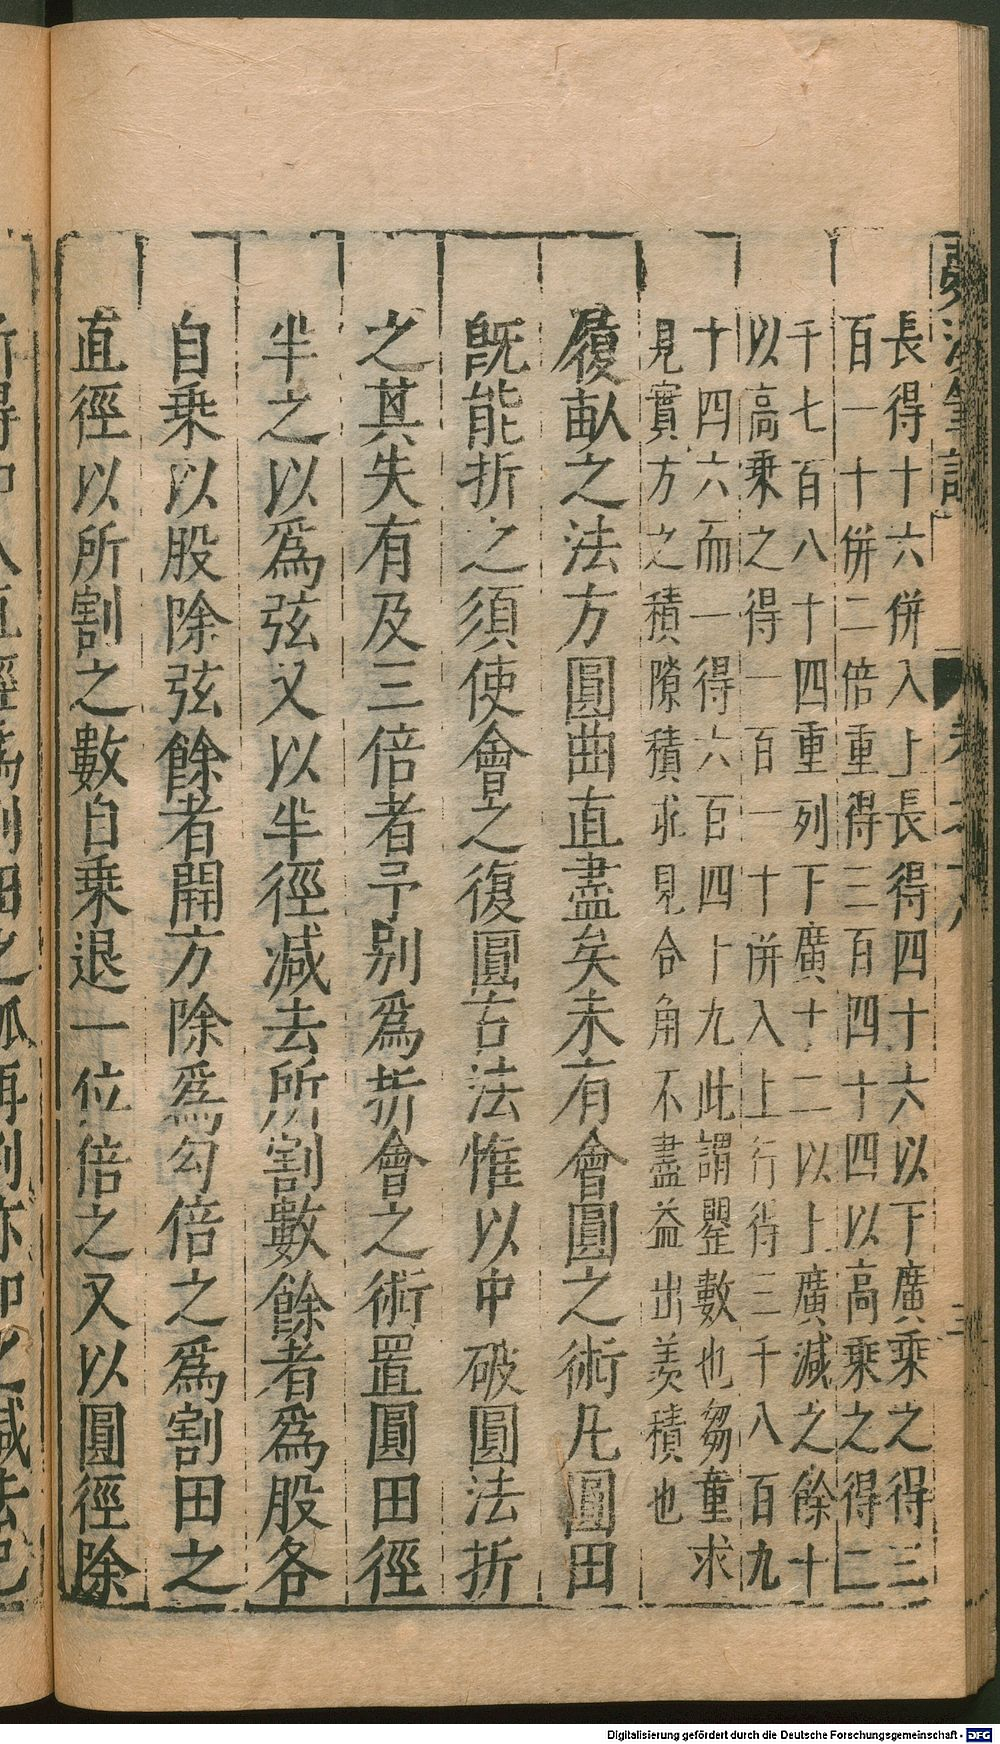 長得十六併入上長得四十六以下廣乘之得三
百一十併二倍重得三百四十四以高乘之得二
千七百八十四重列下廣十二以上廣減之餘十
以高乘之得一百一十併入上行得三千八百九
十四六而一得六百四十九此謂罌數也芻童求
見實方之積隙積求見合角不盡益出羨積也
履畝之法方圓曲直盡矣未有會圓之術凡圓田
旣能折之須使會之復圓古法惟以中破圓法折
之其失有及三倍者予别爲折會之術置圓田徑
半之以爲弦又以半徑減去所割數餘者爲股各
自乘以股除弦餘者開方除爲勾倍之爲割田之
直徑以所割之數自乘退一位倍之又以圓徑除
Digitalisierung gefördert durch die Deutsche Forschungsgemeinschaft - DFG